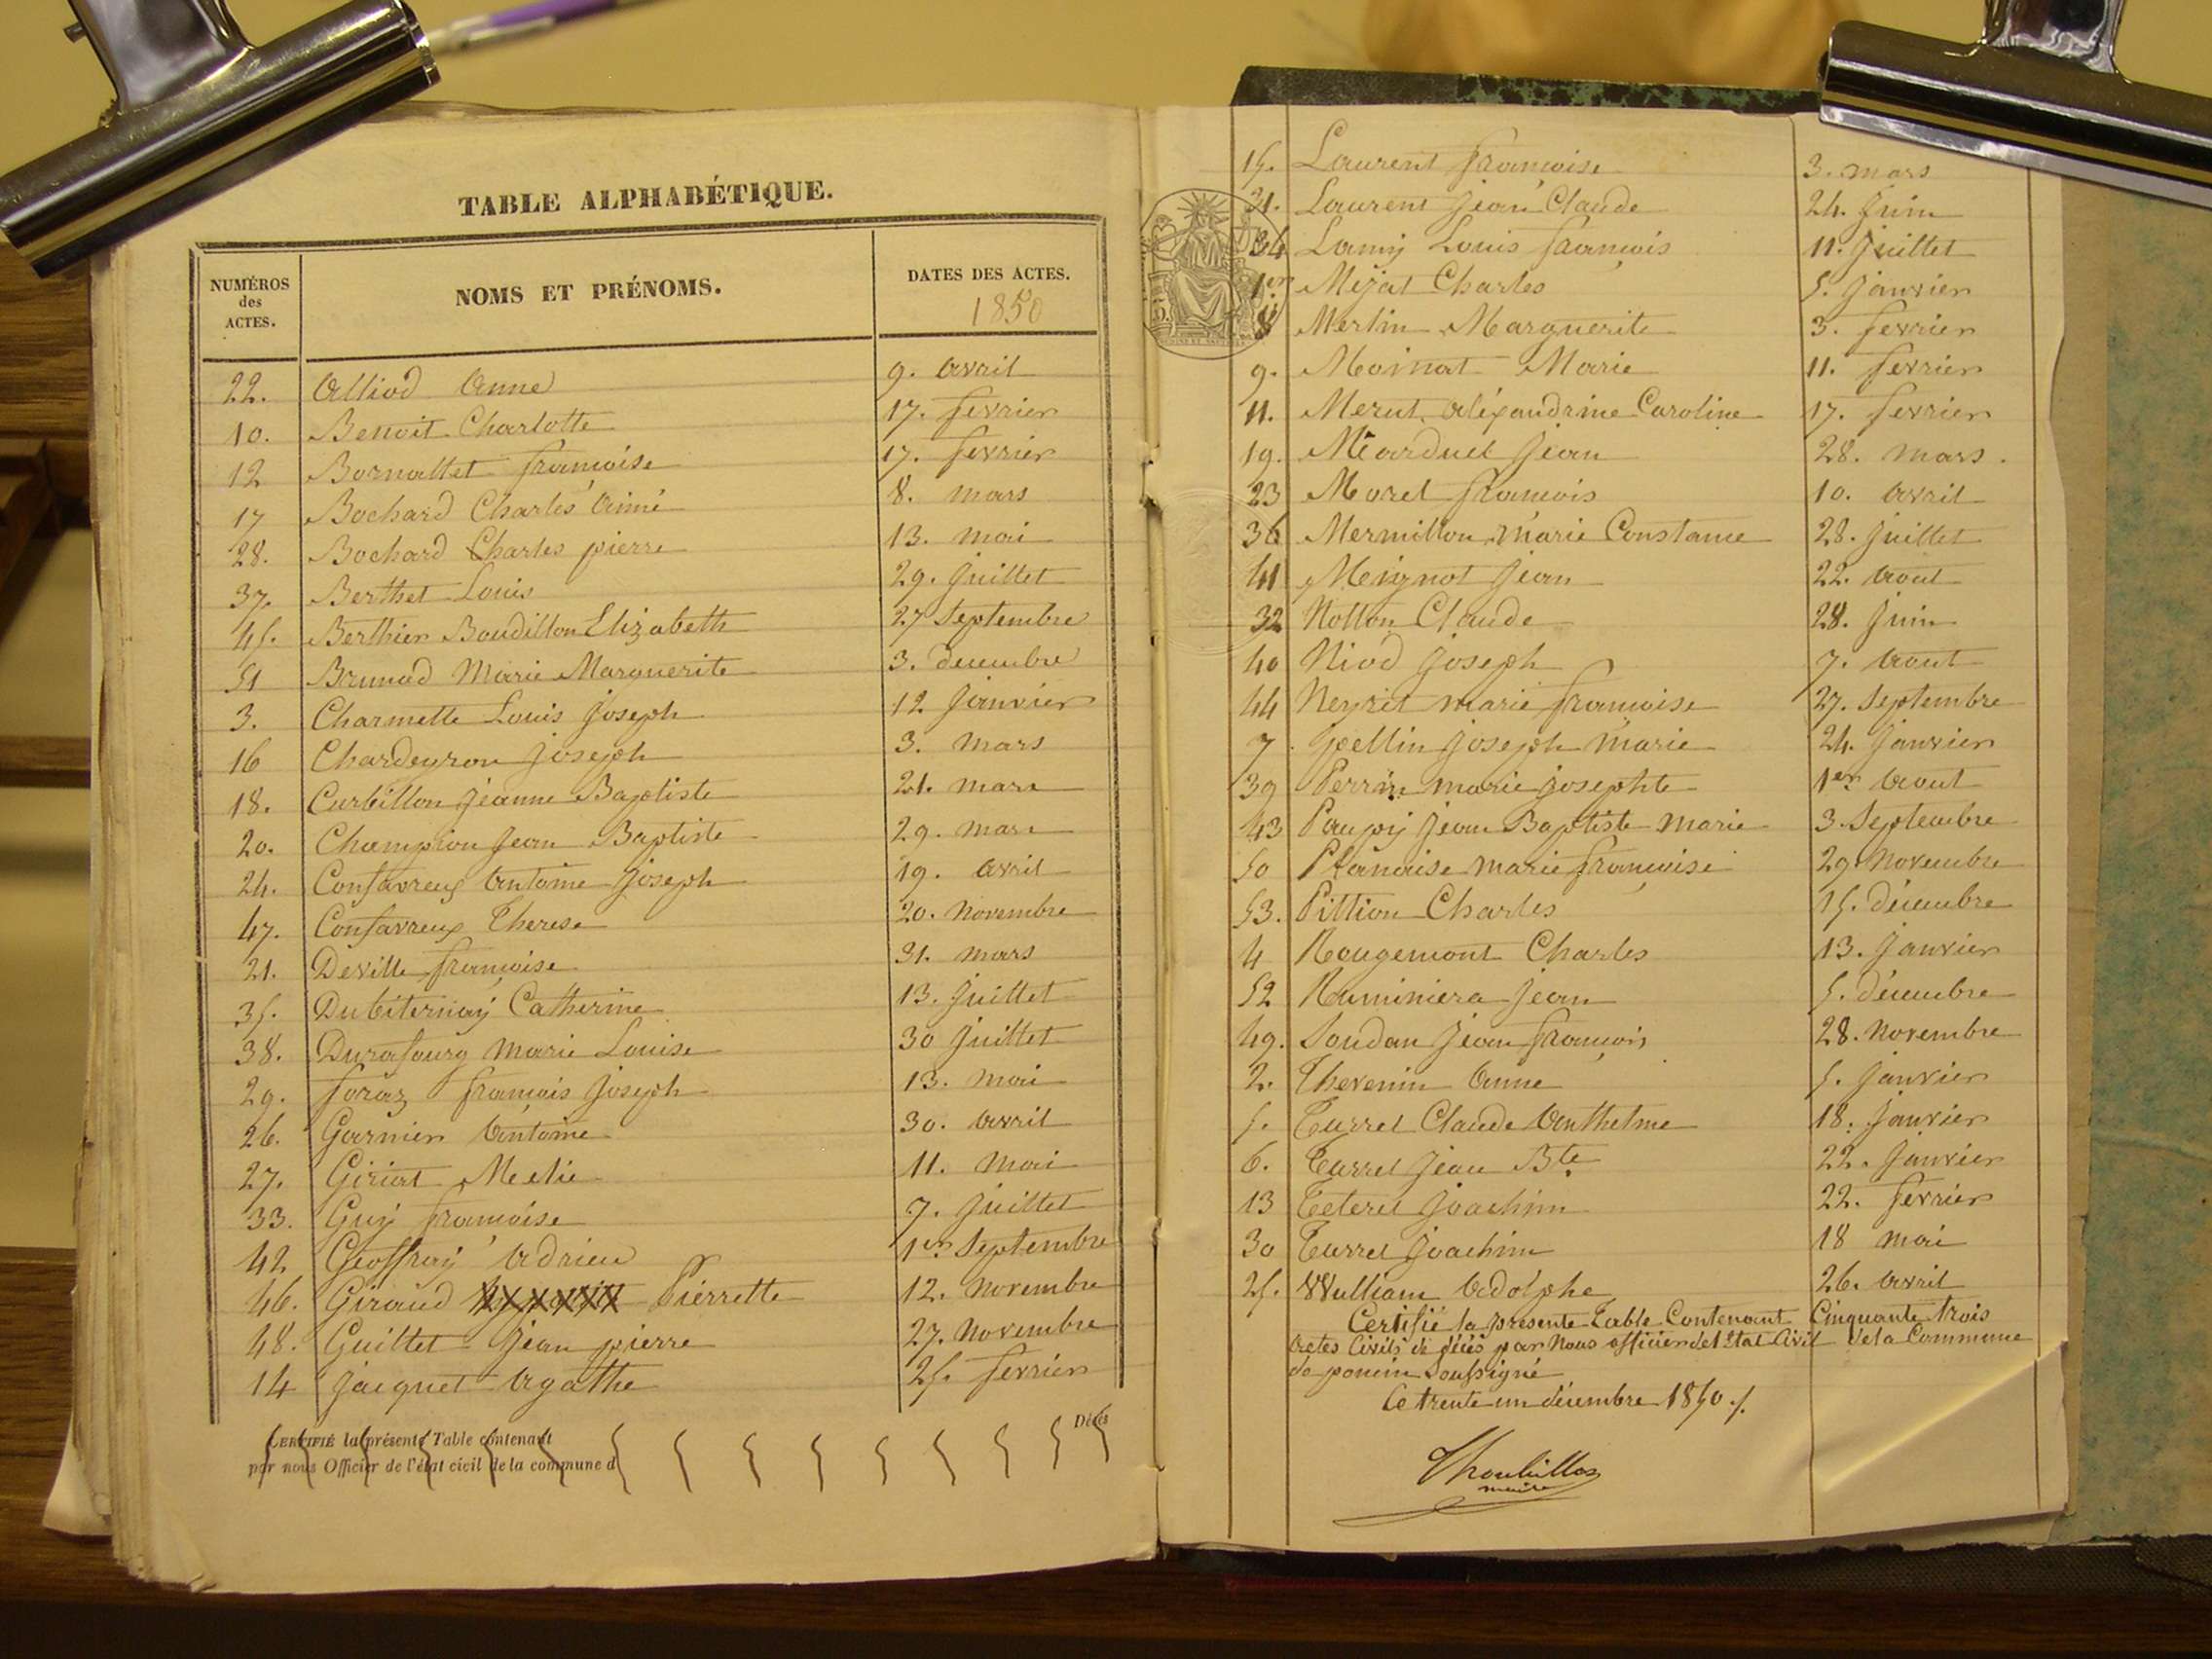 TABLE ALPHABÉTIQUE.
NUMÉROS des ACTES. NOMS ET PRÉNOMS. DATES DES ACTES.
1850
22. Alliod Anne 9. avril
10. Benoit Charlotte 17. fevrier
12 Bornallet françoise 17. fevrier
17 Bochard Charles Aimé 8. mars
28. Bochard Charles pierre 13. mai
37. Berthet Louis 29. Juillet
45. Berthier Boudillon Elizabeth 27 Septembre
51 Brunod Marie Marguerite 3. decembre
3. Charmette Louis Joseph 12 Janvier
16 Chardeyron Joseph 3. mars
18. Curbillon Jeanne Baptiste 21. mars
20. Champion Jean Baptiste 29. mars
24. Confavreux Antoine Joseph 19. avril
47. Confavreux Therese 20. novembre
21. Deville françoise 31. mars
35. Dubiternay Catherine 13. Juillet
38. Durafourg Marie Louise 30 Juillet
29. foraz françois Joseph 13. mai
26. Garnier Antoine 30. avril
27. Giriat Melie 11. mai
33. Guy françoise 7. Juillet
42 Geoffray Adrien 1er Septembre
46. Giraud Pierrette 12. novembre
48. Guillet Jean pierre 27. novembre
14 Jacquet Agathe 25. fevrier
CERTIFIÉ la présente Table contenant Décès
par nous Officier de l'état civil de la commune d
15. Laurent françoise 3. mars
31. Laurent Jean Claude 24. Juin
34 Lamy Louis françois 11. Juillet
1er Mijat Charles 5. Janvier
8 Merlin Marguerite 3. fevrier
9. Moinat Marie 11. fevrier
11. Merut Aléxandrine Caroline 17. fevrier
19. Méarduel Jean 28. mars.
23 Morel françois 10. avril
36 Mermillon Marie Constance 28. Juillet
41 Meignot Jean 22. Aout
32 Nollon Claude 28. Juin
40 Niod Joseph 7. Aout
44 Neyret marie françoise 27. Septembre
7. pellin Joseph Marie 24. Janvier
39 Perrin marie Josephte 1er Aout
43 Paupy Jean Baptiste marie 3. Septembre
50 Planaise marie françoise 29. novembre
53. Pittion Charles 15. décembre
4 Rougemont Charles 13. Janvier
52 Ruminiera Jean 5. décembre
49. Soudan Jean françois 28. novembre
2. Thevenin Anne 5. Janvier
5. Turrel Claude Anthelme 18. Janvier
6. Turrel Jean Bte 22. Janvier
13 Teterel Joachim 22. fevrier
30 Turrel Joachim 18 mai
25. Wulliam Adolphe 26. avril
Certifié la présente Table Contenant Cinquante trois
actes Civils de décès par Nous officier de l'Etat Civil de la Commune
de poncin Soussigné
Ce trente un décembre 1850./.
Thoubillon
maire